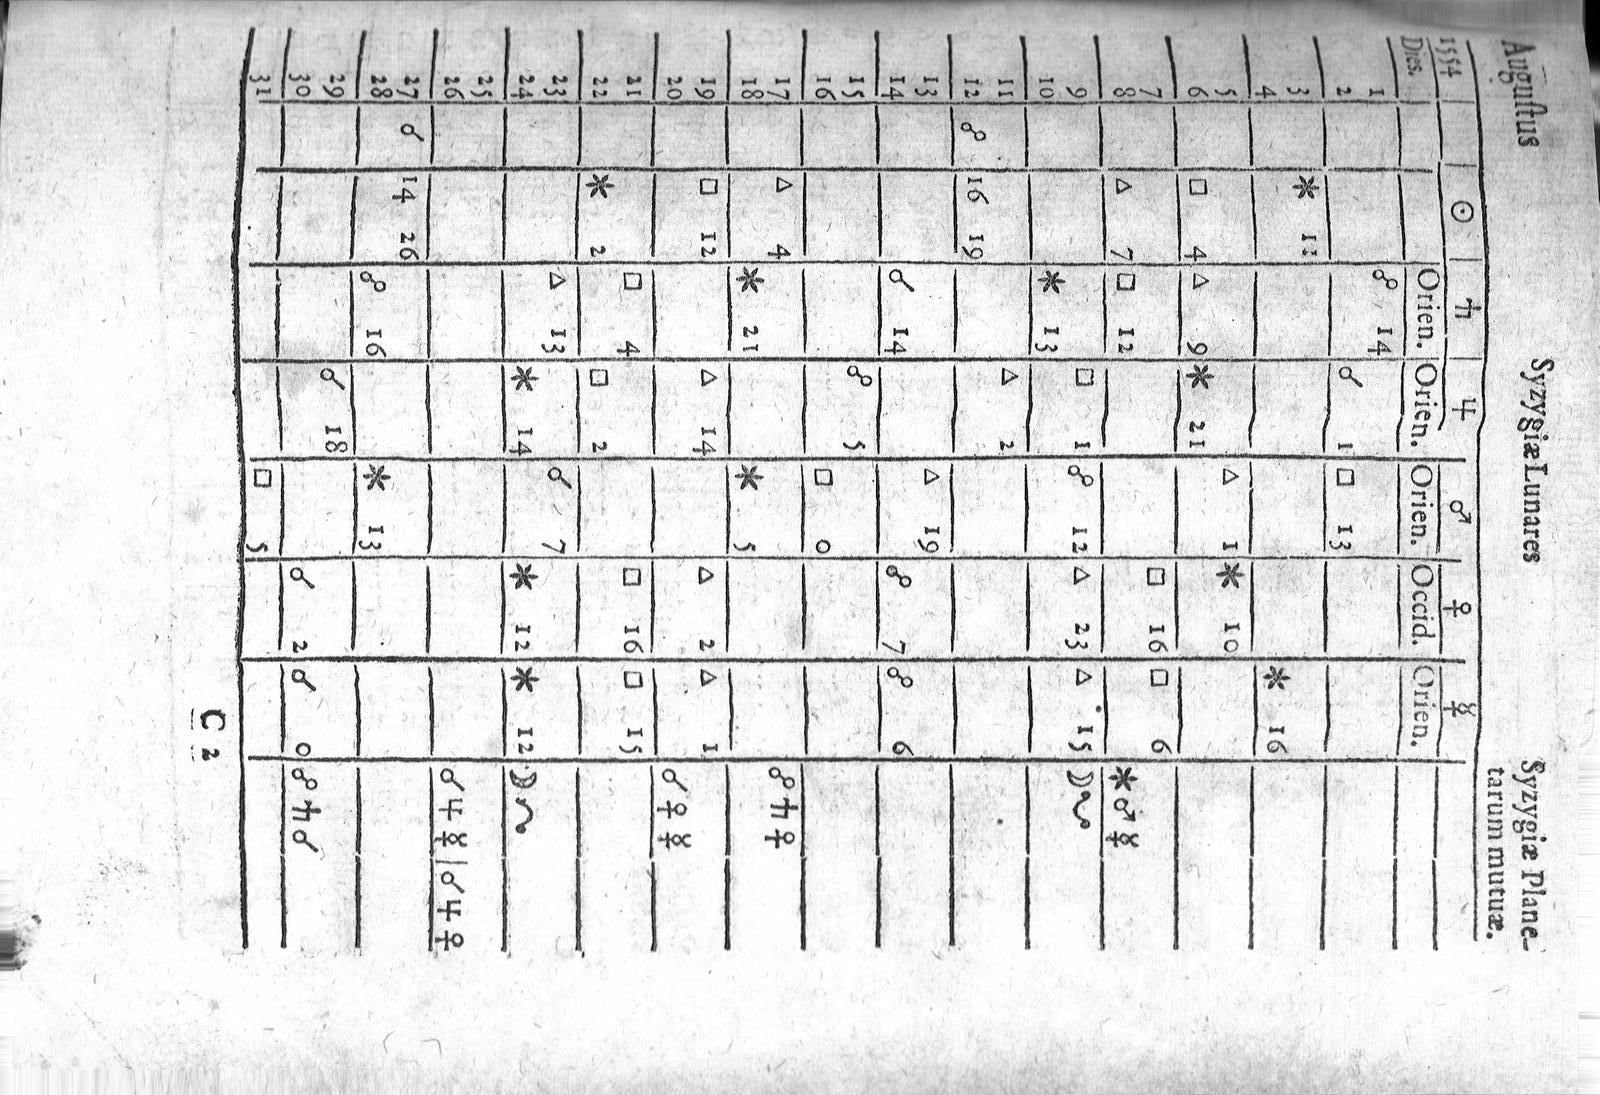 Augustus Syzygiæ Lunares Syzygiæ Plane-
tarum mutuæ.
1554 ☉ ♄ ♃ ♂ ♀ ☿
Dies. Orien. Orien. Orien. Occid. Orien.
1 ☍ 14
2 ☌ 1 □ 13
3 ✶ 11
4 ✶ 16
5 △ 1 ✶ 10
6 □ 4 △ 9 ✶ 21
7 □ 16 □ 6
8 △ 7 □ 12 ✶ ♂ ☿
9 □ 1 ☍ 12 △ 23 △ 15 ☽
10 ✶ 13
11 △ 2
12 ☍ 16 19
13 △ 19
14 ☌ 14 ☍ 7 ☍ 6
15 ☍ 5
16 □ 0
17 △ 4 ☍ ♄ ♀
18 ✶ 21 ✶ 5
19 □ 12 △ 14 △ 2 △ 1
20 ☌ ♀ ☿
21 □ 4 □ 16 □ 15
22 ✶ 2 □ 2
23 △ 13 ☌ 7
24 ✶ 14 ✶ 12 ✶ 12 ☽
25
26 ☌ ♃ ☿ | ☌ ♃ ♀
27 ☌ 14 26
28 ☍ 16 ✶ 13
29 ☌ 18
30 ☌ 2 ☌ 0 ☍ ♄ ♂
31 □ 5
C 2